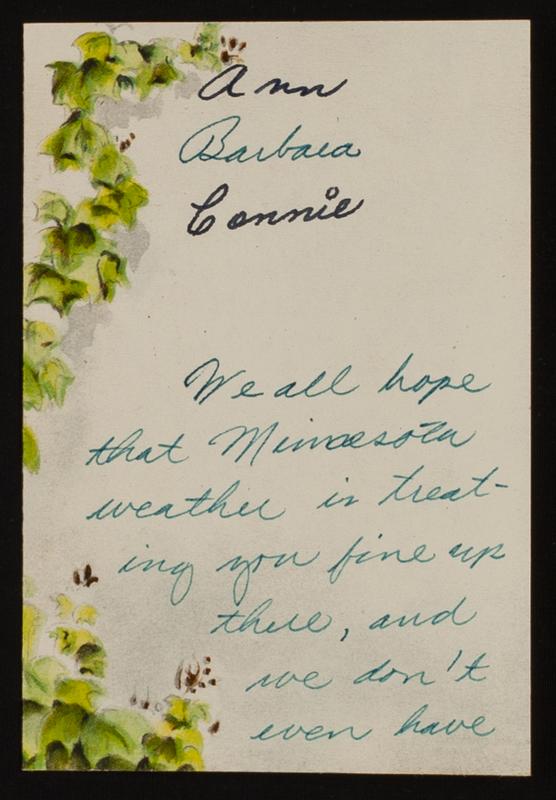 Ann
Barbara
Connie
We all hope
that Minnesota
weather is treat-
ing you fine up
there, and
we don't
even have